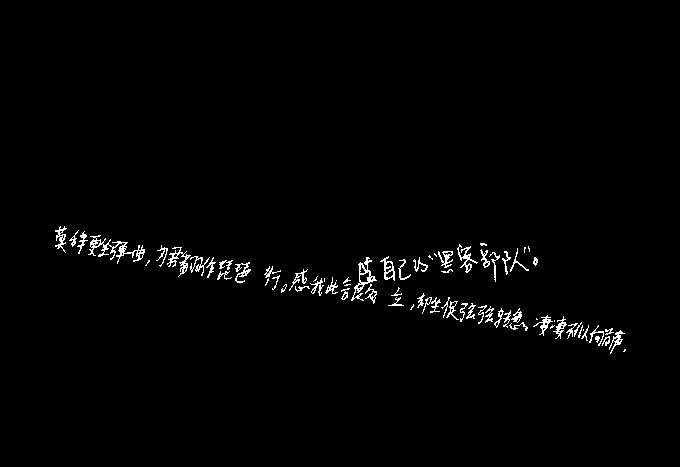 莫辞更坐弹一曲，为君翻作琵琶行。感我此言良久立，却坐促弦弦转急。凄凄不似向前声，
自己的“黑客部队”。